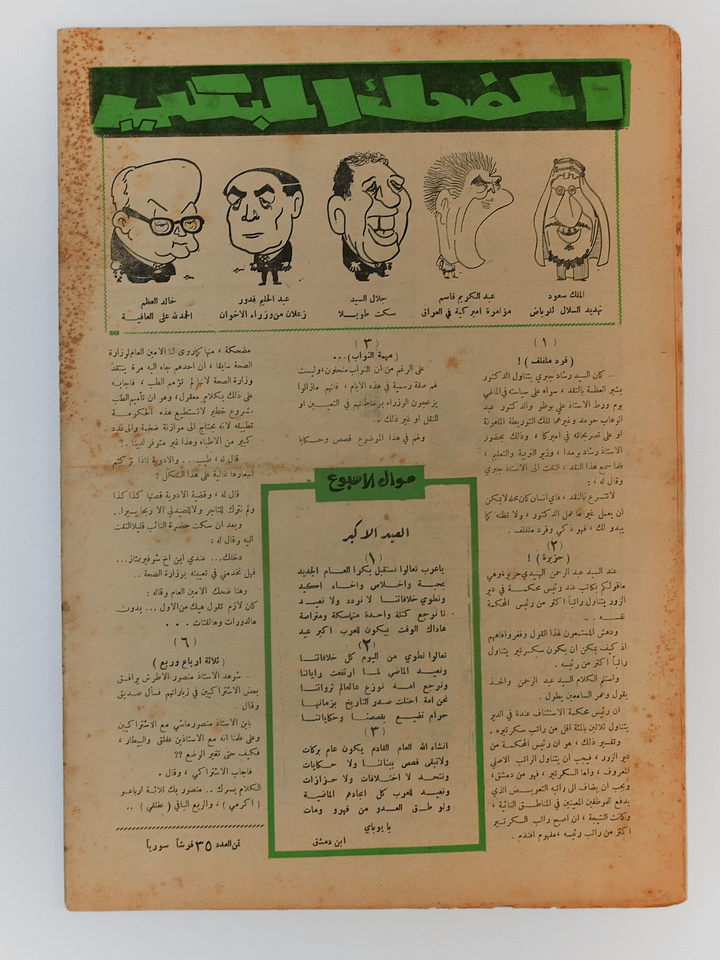 المضحك المبكي
الملك سعود
تهديد السلال للرياض
عبد الكريم قاسم
مؤامرة اميركية في العراق
جلال السيد
سكت طويلا
عبد الحليم قدور
زعلان من وزراء الاخوان
خالد العظم
الحمد لله على العافية
(١)
(قرد ملفلف) !
كان السيد رشاد جبري يتناول الدكتور
بشير العظمة بالنقد ، سواء على سياسته في الماضي
يوم ورط الاستاذ علي بوظو والدكتور عبد
الوهاب حومد وغيرهما تلك التوريطة الملعونة
او على تصريحاته في اميركا ، وذلك بحضور
الاستاذ رشاد برمدا ، وزير التربية والتعليم ،
فلما سمع هذا النقد ، التفت الى الاستاذ جبري
وقال له :
لا تتسرع بالنقد ، فاي انسان كان محله لا يمكن
ان يعمل غير ما عمل الدكتور ، ولا تظنه كما
يبدو لك ، فهو ذكي وقرد ملفلف .
(٢)
(حزيرة) !
عند السيد عبد الرحمن الهنيدي حزيرة وهي
ما قولكم بكاتب عند رئيس محكمة في دير
الزور يتناول راتباً اكثر من رئيس المحكمة
نفسه ..
ودهش المستمعون لهذا القول وفغروا افاههم
اذ كيف يمكن ان يكون سكرتير يتناول
راتباً اكثر من رئيسه .
واستلم الكلام السيد عبد الرحمن واخذ
يقول وعمر السامعين يطول .
ان رئيس محكمة الاستئناف عندة في الدير
يتناول ثلاثين بالمئة اقل من راتب سكرتيره .
وتفسير ذلك ، هو ان رئيس المحكمة من
دير الزور ، فيجب ان يتناول الراتب الاصلي
المعروف ، واما السكرتير ، فهو من دمشق ،
ويجب ان يضاف الى راتبه التعويض الذي
يدفع للموظفين المعينين في المناطق النائية ،
وكانت النتيجة ، ان اصبح راتب السكرتير
اكثر من راتب رئيسه ، مفهوم افندم .
(٣)
(مهمة النواب) ...
على الرغم من ان النواب منحلون ، وليست
لهم صفة رسمية في هذه الايام ، فانهم مازالوا
يزعجون الوزراء بوساطاتهم في التعيين او
النقل او غير ذلك .
ولهم في هذا الموضوع قصص وحكايا
مضحكة ، منها كما روى لنا الامين العام لوزارة
الصحة سابقا ، ان احدهم جاء اليه مرة ينتقد
وزارة الصحة لانها لم تؤمم الطب ، فاجابه
على ذلك بكلام معقول ، وهو ان تأميم الطب
مشروع خطير لا تستطيع هذه الحكومة
تطبيقه لانه يحتاج الى موازنة ضخمة والى عدد
كبير من الاطباء وهذا غير متوفر لدينا ..
قال له ، طيب .. والادوية لماذا تركتم
اسعارها غالية على هذا الشكل ؟
قال له ، وقضية الادوية قصتها كذا كذا
ولم نترك للتاجر والصيدلي الا ربحا يسيرا ..
وبعد ان سكت حضرة النائب قليلا التفت
اليه وقال له :
دخلك ... عندي ابن اخ شوفير ممتاز ...
فهل تخدمني في تعيينه بوزارة الصحة ..
وهنا ضحك الامين العام وقاله :
كان لازم تقول هيك من الاول ... بدون
هالدورات وهاللفتات ...
(٦)
(ثلاثة ارباع وربع)
شوهد الاستاذ منصور الاطرش يرافق
بعض الاشتراكيين في زياراتهم فسأل صديق
وقال
بابن الاستاذ منصور ماشي مع الاشتراكيين
وعلى علمنا انه مع الاستاذين عفلق والبيطار ،
فكيف حتى تغير الوضع ؟؟
فاجاب الاشتراكي ، وقال .
الكلام بسرك .. منصور بك ثلاثة ارباعو
( اكرمي ) ، والربع الباقي ( عفلقي ) ..
ثمن العدد ٣٥ قرشاً سورياً
موال الاسبوع
العيد الاكبر
(١)
ياعرب تعالوا نستقبل بكوا العام الجديد
بمحبة واخلاص واخاء اكيد
ونطوي خلافاتنا لا نردد ولا نعيد
تا نرجع كتلة واحدة متماسكة ومتراصة
هاذاك الوقت بيكون للعرب اكبر عيد
(٢)
تعالوا نطوي من اليوم كل خلافاتنا
ونعيد الماضي لما ارتفعت راياتنا
ونرجع امه نوزع عالعالم ثرواتنا
نحن امة احتلت صدر التاريخ بزمانها
حرام تضيع بقصصنا وحكاياتنا
(٣)
انشاء الله العام القادم يكون عام بركات
ولا تبقى قصص بيناتنا ولا حكايات
ونتحد لا اختلافات ولا حزازات
ونعيد للعرب كل امجادهم الماضية
ولو طق العدو من قهرو ومات
يا يوباي
ابن دمشق